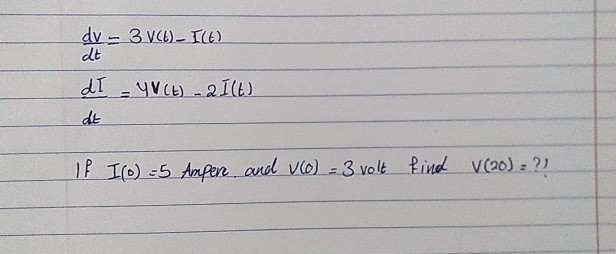 dv/dt = 3 V(t) - I(t)
dI/dt = 4V(t) - 2I(t)
If I(0) = 5 Ampere. and V(0) = 3 volt find V(20) = ??